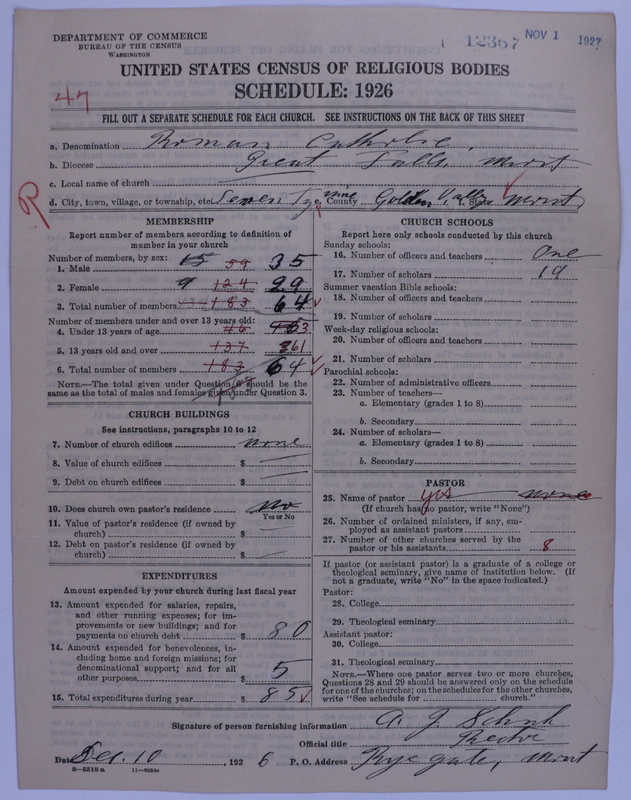 DEPARTMENT OF COMMERCE
BUREAU OF THE CENSUS
WASHINGTON
12367 NOV 1 1927
UNITED STATES CENSUS OF RELIGIOUS BODIES
SCHEDULE: 1926
47
FILL OUT A SEPARATE SCHEDULE FOR EACH CHURCH. SEE INSTRUCTIONS ON THE BACK OF THIS SHEET
a. Denomination Roman Catholic
b. Diocese Great Falls, Mont
c. Local name of church
d. City, town, village, or township, etc. County Golden Valley State Mont
R
MEMBERSHIP
Report number of members according to definition of
member in your church
Number of members, by sex:
1. Male 15 59 35
2. Female 9 124 29
3. Total number of members 183 64
Number of members under and over 13 years old:
4. Under 13 years of age 46 3
5. 13 years old and over 137 61
6. Total number of members 183 64
NOTE.—The total given under Question 6 should be the
same as the total of males and females given under Question 3.
CHURCH BUILDINGS
See instructions, paragraphs 10 to 12
7. Number of church edifices none
8. Value of church edifices $
9. Debt on church edifices $
10. Does church own pastor's residence No
Yes or No
11. Value of pastor's residence (if owned by
church) $
12. Debt on pastor's residence (if owned by
church) $
EXPENDITURES
Amount expended by your church during last fiscal year
13. Amount expended for salaries, repairs,
and other running expenses; for im-
provements or new buildings; and for
payments on church debt $ 80
14. Amount expended for benevolences, in-
cluding home and foreign missions; for
denominational support; and for all
other purposes $ 5
15. Total expenditures during year $ 85
CHURCH SCHOOLS
Report here only schools conducted by this church
Sunday schools:
16. Number of officers and teachers One
17. Number of scholars 19
Summer vacation Bible schools:
18. Number of officers and teachers
19. Number of scholars
Week-day religious schools:
20. Number of officers and teachers
21. Number of scholars
Parochial schools:
22. Number of administrative officers
23. Number of teachers—
a. Elementary (grades 1 to 8)
b. Secondary
24. Number of scholars—
a. Elementary (grades 1 to 8)
b. Secondary
PASTOR
25. Name of pastor yes none
(If church has no pastor, write "None")
26. Number of ordained ministers, if any, em-
ployed as assistant pastors
27. Number of other churches served by the
pastor or his assistants 8
If pastor (or assistant pastor) is a graduate of a college or
theological seminary, give name of institution below. (If
not a graduate, write "No" in the space indicated.)
Pastor:
28. College
29. Theological seminary
Assistant pastor:
30. College
31. Theological seminary
NOTE.—Where one pastor serves two or more churches,
Questions 28 and 29 should be answered only on the schedule
for one of the churches; on the schedules for the other churches,
write "See schedule for church."
Signature of person furnishing information A. J.
Official title Rector
Date Dec. 10, 1926 P. O. Address Ryegate, Mont
8—5518 a